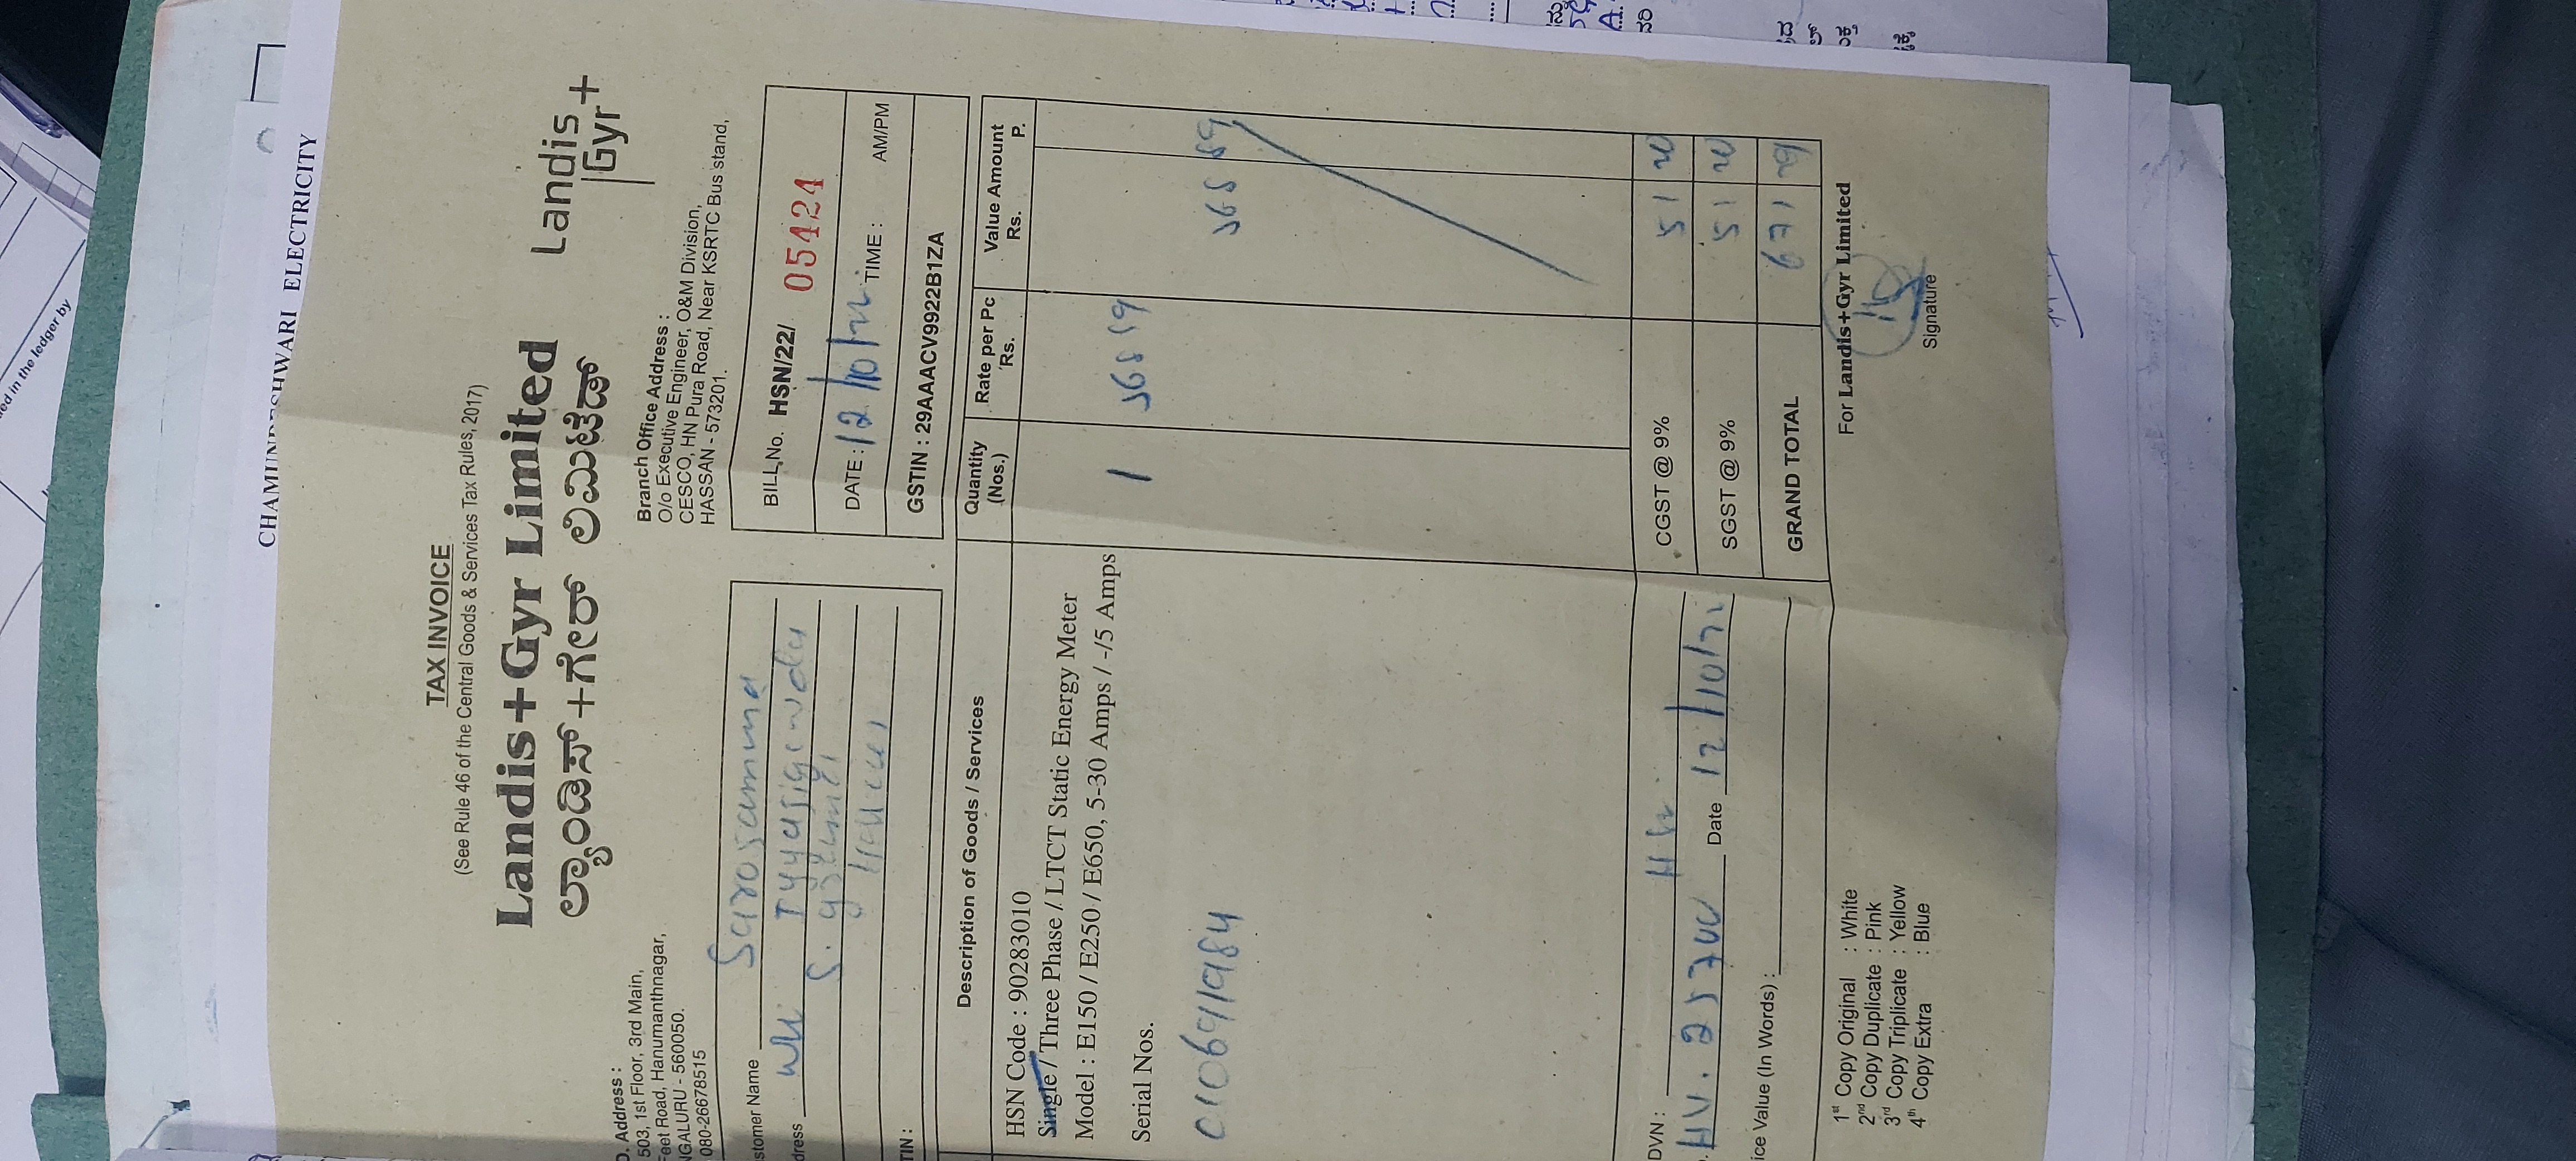 CHAMUNDESHWARI ELECTRICITY
TAX INVOICE
(See Rule 46 of the Central Goods & Services Tax Rules, 2017)
Landis+Gyr Limited
ಲ್ಯಾಂಡಿಸ್+ಗೇರ್ ಲಿಮಿಟೆಡ್
Landis
Gyr+
Address :
503, 1st Floor, 3rd Main,
Feet Road, Hanumanthnagar,
NGALURU - 560050.
080-26678515
Branch Office Address :
O/o Executive Engineer, O&M Division,
CESCO, HN Pura Road, Near KSRTC Bus stand,
HASSAN - 573201.
stomer Name Sarojamma
dress
TIN :
BILL No. HSN/22/ 05424
DATE : 12/10/22 TIME : AM/PM
GSTIN : 29AAACV9922B1ZA
Description of Goods / Services
Quantity (Nos.)
Rate per Pc Rs.
Value Amount Rs. P.
HSN Code : 90283010
Single / Three Phase / LTCT Static Energy Meter
Model : E150 / E250 / E650, 5-30 Amps / -/5 Amps
Serial Nos.
1
568 89
C10691984
CGST @ 9% 51 20
SGST @ 9% 51 20
GRAND TOTAL 671 29
DVN :
Date 12/10/22
ice Value (In Words) :
For Landis+Gyr Limited
Signature
1st Copy Original : White
2nd Copy Duplicate : Pink
3rd Copy Triplicate : Yellow
4th Copy Extra : Blue
ed in the ledger by